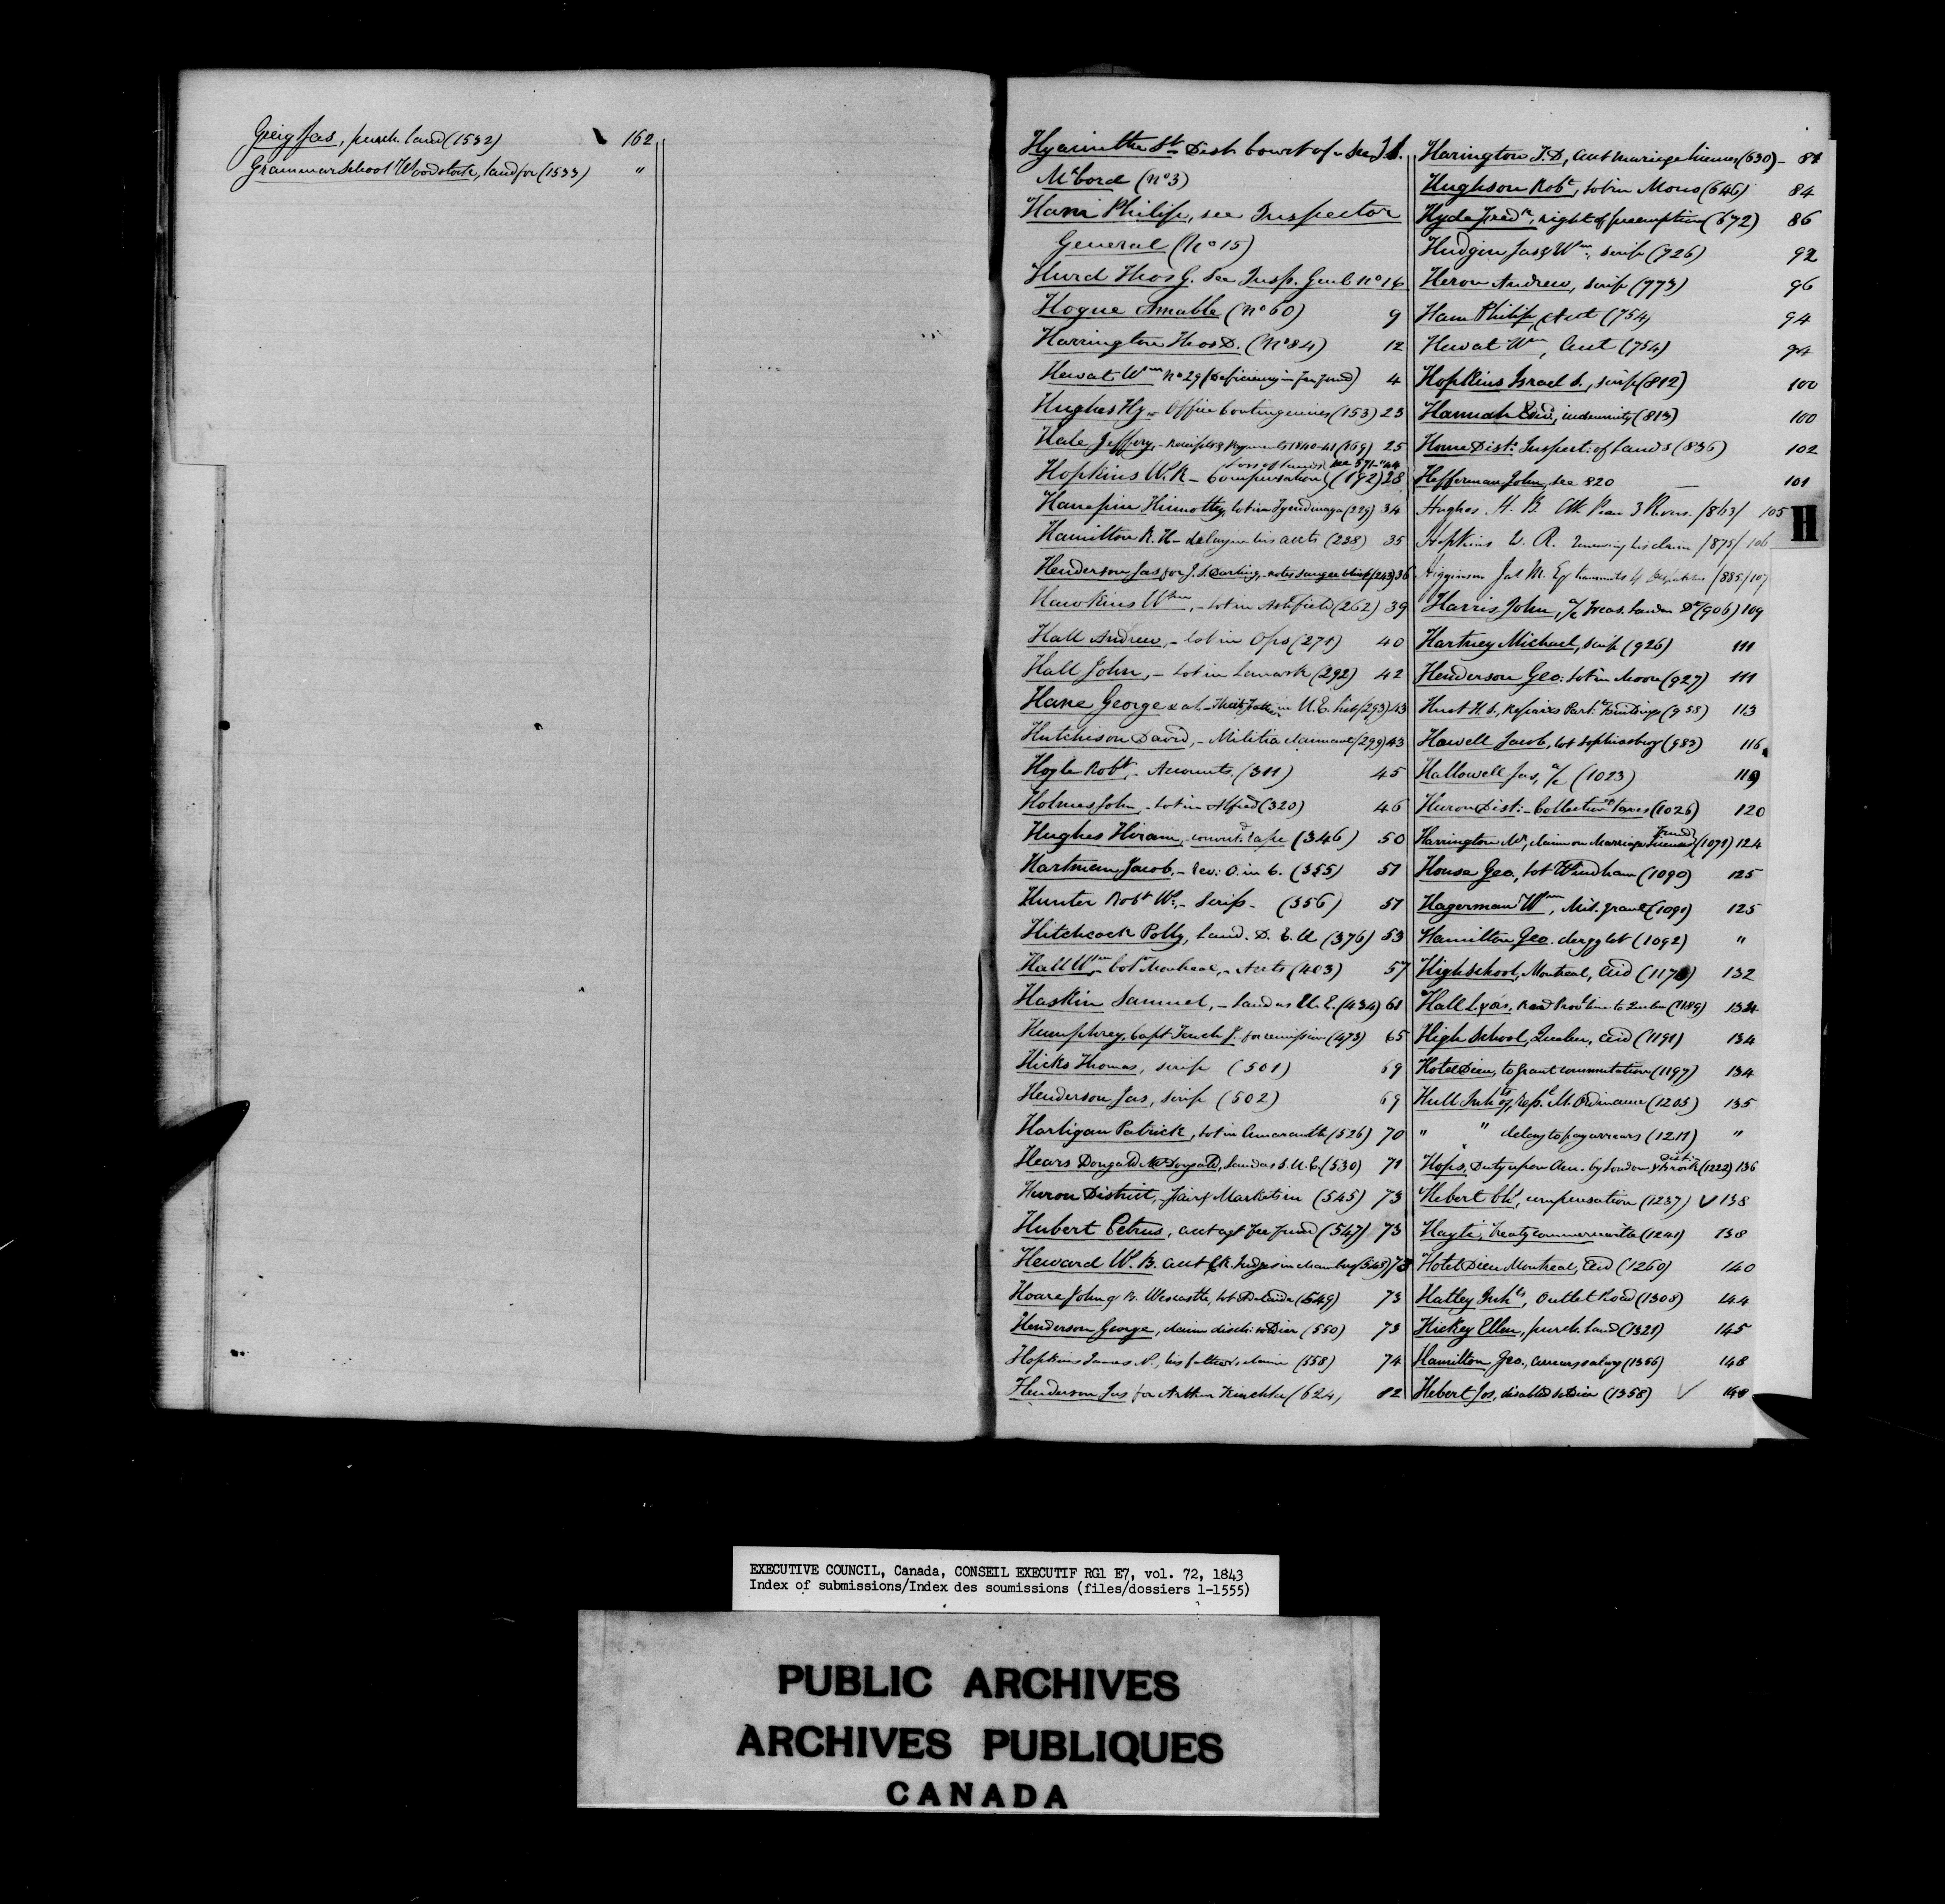 Greig Jas, purch. land (1532) 162
Grammar School Woodstock, land for (1533) "
Hyacinthe St Dist. Court of - See T. S.
McCord (No 3)
Ham Philip, see Inspector
General (No 15)
Hurd Thos G. See Insp. Genl No 16
Hogue Amable (No 60) 9
Harrington Thos D. (No 84) 12
Hewat Wm No 29 (Deficiency in Fee fund) 4
Hughes Hy - Office Contingencies (153) 23
Hale Jeffery, - Receipts & Payments 1840-41 (169) 25
Loss of Lands see 571 - " 44
Hopkins W. R - Compensation (192) 28
Timothy, lot in Tyendinaga (229) 34
Hamilton R. H - delay in his accts (238) 35
Henderson Jas for J. S. (243) 36
Hawkins Wm, - lot in Ashfield (262) 39
Hall Andrew, - lot in Ops (271) 40
Hall John, - lot in Lanark (292) 42
Hane George & al - in U. E. list (293) 43
Hutchison David, - Militia claimant (299) 43
Hoyle Robt, - Accounts (311) 45
Holmes John, - lot in Alfred (320) 46
Hughes Hiram, convicted rape (346) 50
Hartman Jacob, - Rev: O. in C. (355) 51
Hunter Robt W. - Scrip - (356) 51
Hitchcock Polly, Land. D. E. U (376) 53
Hall Wm Colr Montreal, - Accts (403) 57
Haskin Samuel, - Land as U. E. (434) 61
Humphrey, Capt for remission (473) 65
Hicks Thomas, scrip (501) 69
Henderson Jas, scrip (502) 69
Hartigan Patrick, lot in Amaranth (526) 70
Hears Dougald McDougald, Land as S. U. E. (530) 71
Huron District, - Fair & Markets in (545) 73
Hubert Petrus, acct agt Fee fund (547) 73
Heward W. B. acct Clk. Judges in chambers (548) 73
Hoare John & R. Wescastle, lot Adelaide (549) 73
Henderson George, claim disch: soldier (550) 73
Hopkins James N., his father's claim (558) 74
Henderson Jas for Arthur Kinchla (624) 82
Harington T. D, acct marriage licenses (630) - 82
Hughson Robt, lot in Mono (646) 84
Hyde Fredk, right of preemption (672) 86
Hudgin Jas & Wm, scrip (726) 92
Heron Andrew, scrip (773) 96
Ham Philip, Acct (754) 94
Hewat Wm, Acct (754) 94
Hopkins Israel S., scrip (812) 100
Hannah Edwd, indemnity (813) 100
Home Dist: Inspect: of Lands (836) 102
Hefferman John, see 820 101
Hughes. H. B. Clk Peace 3 Rivers. /863/ 105
H
Hopkins W. R. Renewing his claim /875/ 106
Higginson Jas M. Esq transmits Despatches /885/ 107
Harris John, a/c Treas. London Dt (906) 109
Hartney Michael, scrip (926) 111
Henderson Geo: lot in Moore (927) 111
Hurst H. S., Repairs Parlt Buildings (958) 113
Howell Jacob, lot Sophiasburg (983) 116
Hallowell Jas, a/c (1023) 119
Huron Dist: - Collection of Taxes (1026) 120
Harrington Mr, claim on Marriage License Fund (1079) 124
House Geo, lot Windham (1090) 125
Hagerman Wm, Mil. grant (1091) 125
Hamilton Geo. clergy lot (1092) "
High school, Montreal, aid (1170) 132
Hall L. & ors, Road Provl line to Quebec (1189) 134
High School, Quebec, aid (1191) 134
Hotel Dieu, to grant commutation (1197) 134
Hull Inhts of, Resp. M. Ordinance (1203) 135
" " delay to pay arrears (1211) "
Hops, Duty upon Am. by London & Brock Distr: (1222) 136
Hebert Chs, compensation (1237) ✓ 138
Hayti, treaty commerce with (1241) 138
Hotel Dieu Montreal, Aid (1260) 140
Hatley Inhts, Outlet Road (1308) 144
Hickey Ellen, purch. Land (1321) 145
Hamilton Geo., arrears salary (1356) 148
Hebert Jos, disabled soldier (1358) ✓ 148
EXECUTIVE COUNCIL, Canada, CONSEIL EXECUTIF RG1 E7, vol. 72, 1843
Index of submissions/Index des soumissions (files/dossiers 1-1555)
PUBLIC ARCHIVES
ARCHIVES PUBLIQUES
CANADA